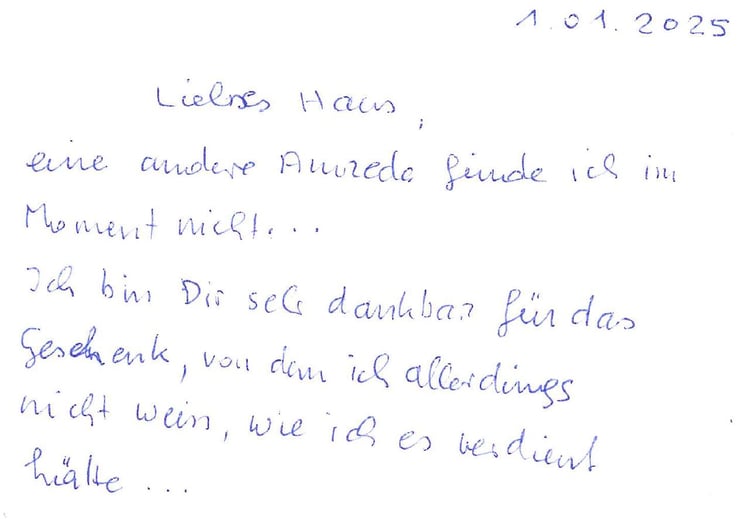 1.01.2025
Liebes Haus,
eine andere Anrede finde ich im
Moment nicht...
Ich bin Dir sehr dankbar für das
Geschenk, von dem ich allerdings
nicht weiss, wie ich es verdient
hätte...